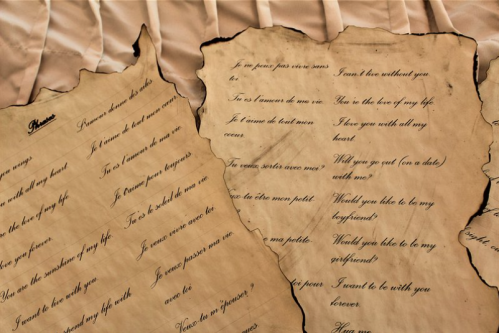 Phrases
L'amour donne des ailes
you wings
Je t'aime de tout mon cœur
with all my heart
Tu es l'amour de ma vie
the love of my life
Je t'aime pour toujours
love you forever
Tu es le soleil de ma vie
You are the sunshine of my life
Je veux vivre avec toi
I want to live with you
Je veux passer ma vie
avec toi
spend my life with
Veux-tu m'épouser ?
je ne peux pas vivre sans
toi
I can't live without you
Tu es l'amour de ma vie
You're the love of my life
Je t'aime de tout mon
coeur
I love you with all my
heart
Tu veux sortir avec moi?
Will you go out (on a date)
with me?
tu être mon petit
Would you like to be my
boyfriend?
ma petite
Would you like to be my
girlfriend?
toi pour
I want to be with you
forever
Hug me